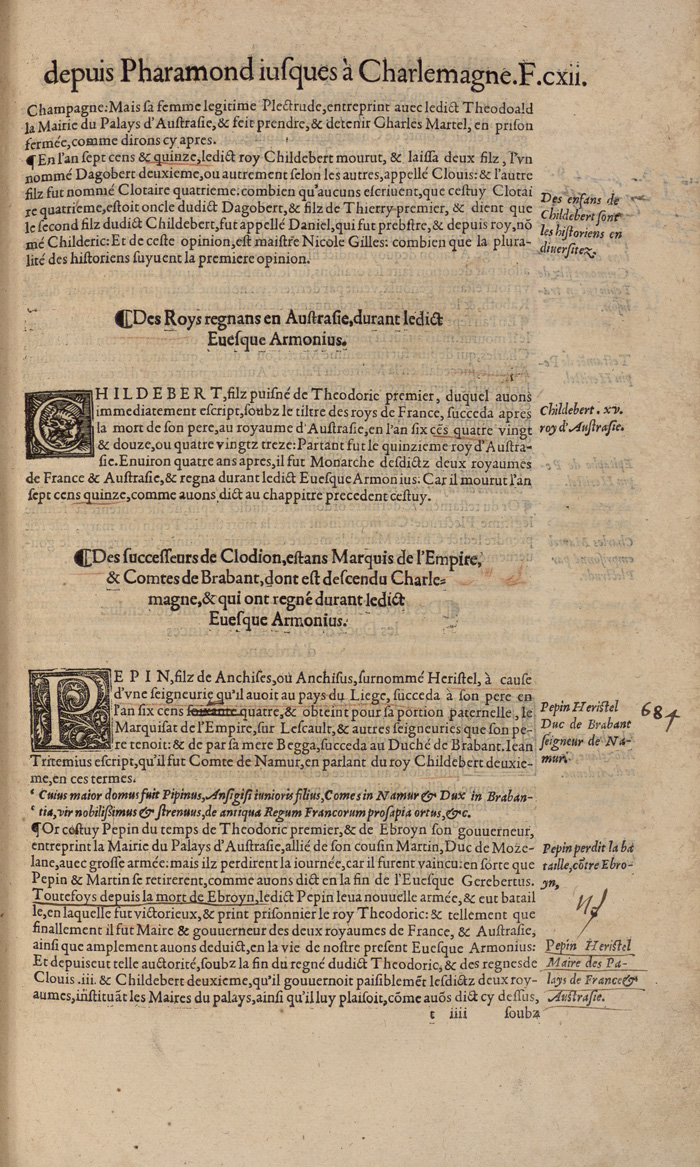 depuis Pharamond iuſques à Charlemagne. F. cxii.
Champagne: Mais ſa femme legitime Plectrude, entreprint auec ledict Theodoald
la Mairie du Palays d'Auſtraſie, & feit prendre, & detenir Gharles Martel, en priſon
fermée, comme dirons cy apres.
¶ En l'an ſept cens & quinze, ledict roy Childebert mourut, & laiſſa deux filz, l'vn
nommé Dagobert deuxieme, ou autrement ſelon les autres, appellé Clouis: & l'autre
filz fut nommé Clotaire quatrieme: combien qu'aucuns eſcriuent, que ceſtuy Clotai
re quatrieme, eſtoit oncle dudict Dagobert, & filz de Thierry premier, & dient que
le ſecond filz dudict Childebert, fut appellé Daniel, qui fut prebſtre, & depuis roy, nō
mé Childeric: Et de ceſte opinion, eſt maiſtre Nicole Gilles: combien que la plura-
lité des hiſtoriens ſuyuent la premiere opinion.
Des enfans de
Childebert ſont
les hiſtoriens en
diuerſitez.
¶ Des Roys regnans en Auſtraſie, durant ledict
Eueſque Armonius.
CHILDEBERT, filz puiſné de Theodoric premier, duquel auons
immediatement eſcript, ſoubz le tiltre des roys de France, ſucceda apres
la mort de ſon pere, au royaume d'Auſtraſie, en l'an ſix cēs quatre vingt
& douze, ou quatre vingtz treze: Partant fut le quinzieme roy d'Auſtra-
ſie. Enuiron quatre ans apres, il fut Monarche deſdictz deux royaumes
de France & Auſtraſie, & regna durant ledict Eueſque Armonius: Car il mourut l'an
ſept cens quinze, comme auons dict au chappitre precedent ceſtuy.
Childebert. xv.
roy d'Auſtraſie.
¶ Des ſucceſſeurs de Clodion, eſtans Marquis de l'Empire,
& Comtes de Brabant, dont eſt deſcendu Charle-
magne, & qui ont regné durant ledict
Eueſque Armonius.
PEPIN, filz de Anchiſes, ou Anchiſus, ſurnommé Heriſtel, à cauſe
d'vne ſeigneurie qu'il auoit au pays du Liege, ſucceda à ſon pere en
l'an ſix cens ſoixante quatre, & obteint pour ſa portion paternelle, le
Marquiſat de l'Empire, ſur Leſcault, & autres ſeigneuries que ſon pe-
re tenoit: & de par ſa mere Begga, ſucceda au Duché de Brabant. Iean
Tritemius eſcript, qu'il fut Comte de Namur, en parlant du roy Childebert deuxie-
me, en ces termes.
Pepin Heriſtel
Duc de Brabant
ſeigneur de Na-
mur.
684
‘ Cuius maior domus fuit Pipinus, Anſigiſi iunioris filius, Comes in Namur & Dux in Braban-
‘ tia, vir nobiliſſimus & ſtrenuus, de antiqua Regum Francorum proſapia ortus, &c.
¶ Or ceſtuy Pepin du temps de Theodoric premier, & de Ebroyn ſon gouuerneur,
entreprint la Mairie du Palays d'Auſtraſie, allié de ſon couſin Martin, Duc de Moze-
lane, auec groſſe armée: mais ilz perdirent la iournée, car il furent vaincu: en ſorte que
Pepin & Martin ſe retirerent, comme auons dict en la fin de l'Eueſque Gerebertus.
Toutefoys depuis la mort de Ebroyn, ledict Pepin leua nouuelle armée, & eut batail
le, en laquelle fut victorieux, & print priſonnier le roy Theodoric: & tellement que
finallement il fut Maire & gouuerneur des deux royaumes de France, & Auſtraſie,
ainſi que amplement auons deduict, en la vie de noſtre preſent Eueſque Armonius:
Et depuis eut telle auctorité, ſoubz la fin du regné dudict Theodoric, & des regnes de
Clouis .iii. & Childebert deuxieme, qu'il gouuernoit paiſiblemēt leſdictz deux roy-
aumes, inſtituāt les Maires du palays, ainſi qu'il luy plaiſoit, cōme auōs dict cy deſſus,
Pepin perdit la ba
taille, cōtre Ebro-
yn,
Pepin Heriſtel
Maire des Pa-
lays de France &
Auſtraſie.
t iiii ſoubz